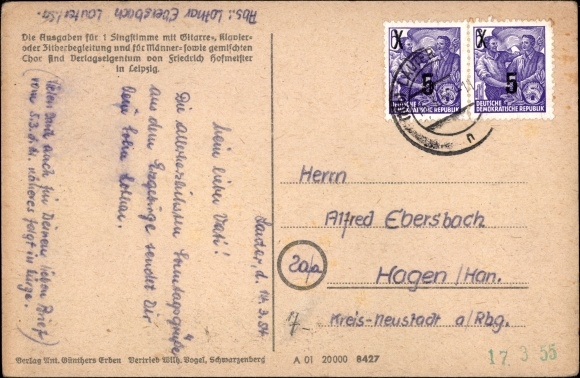 Abs.: Lothar Ebersbach Lauter/Sa.
Die Ausgaben für 1 Singstimme mit Gitarre-, Klavier-
oder Zitherbegleitung und für Männer- sowie gemischten
Chor sind Verlagseigentum von Friedrich Hofmeister
in Leipzig.
5
5
DEUTSCHE
DEMOKRATISCHE REPUBLIK
DEUTSCHE
DEMOKRATISCHE REPUBLIK
Lauter, d. 14.3.54
Mein lieber Vati!
Die allerherzlichsten Sonntagsgrüße
aus dem Erzgebirge sendet Dir
Dein Sohn Lothar.
(Vielen Dank auch für Deinen lieben Brief
vom 5.3. d.M. näheres folgt in Kürze.)
Herrn
Alfred Ebersbach
20a/a
Hagen/Han.
Kreis-Neustadt a/Rbg.
Verlag Ant. Günthers Erben Vertrieb Wilh. Vogel, Schwarzenberg
A 01 20000 8427
17 3 55